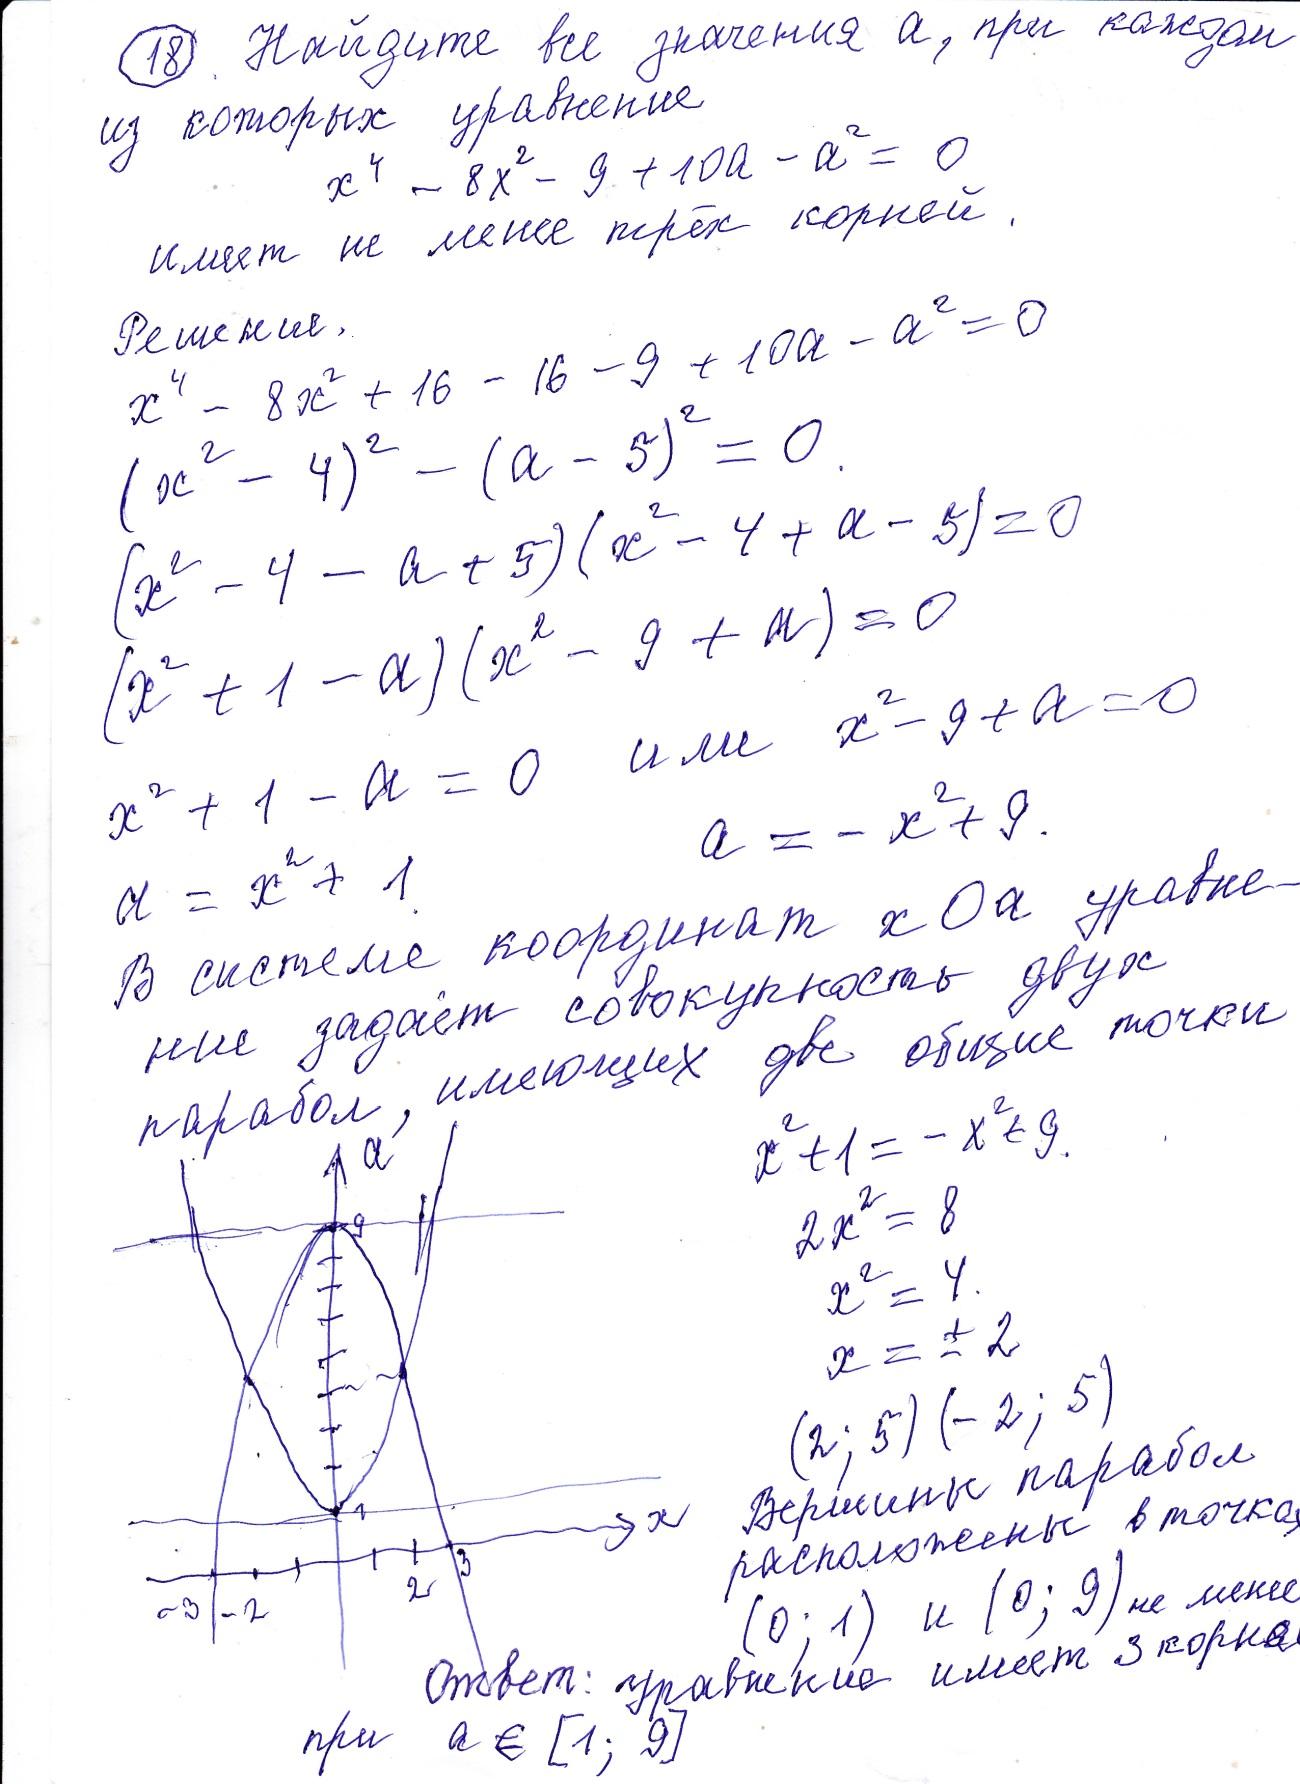 18. Найдите все значения а, при каждом
из которых уравнение
x⁴ - 8x² - 9 + 10a - a² = 0
имеет не менее трёх корней.
Решение.
x⁴ - 8x² + 16 - 16 - 9 + 10a - a² = 0
(x² - 4)² - (a - 5)² = 0.
(x² - 4 - a + 5)(x² - 4 + a - 5) = 0
(x² + 1 - a)(x² - 9 + a) = 0
x² + 1 - a = 0 или x² - 9 + a = 0
a = x² + 1. a = - x² + 9.
В системе координат xOa уравне-
ние задаёт совокупность двух
парабол, имеющих две общие точки
x² + 1 = - x² + 9.
2x² = 8
x² = 4.
x = ± 2
(2; 5) (-2; 5)
Вершины парабол
расположены в точках
(0; 1) и (0; 9) не менее
Ответ: уравнение имеет 3 корней
при a ∈ [1; 9]
a
9
1
x
-3 -2 2 3